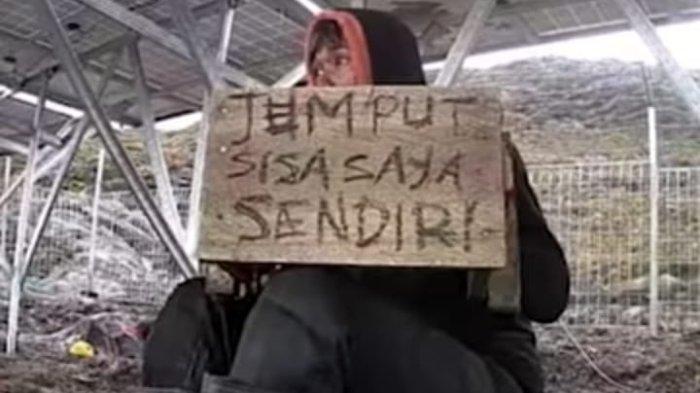 JEMPUT
SISA SAYA
SENDIRI